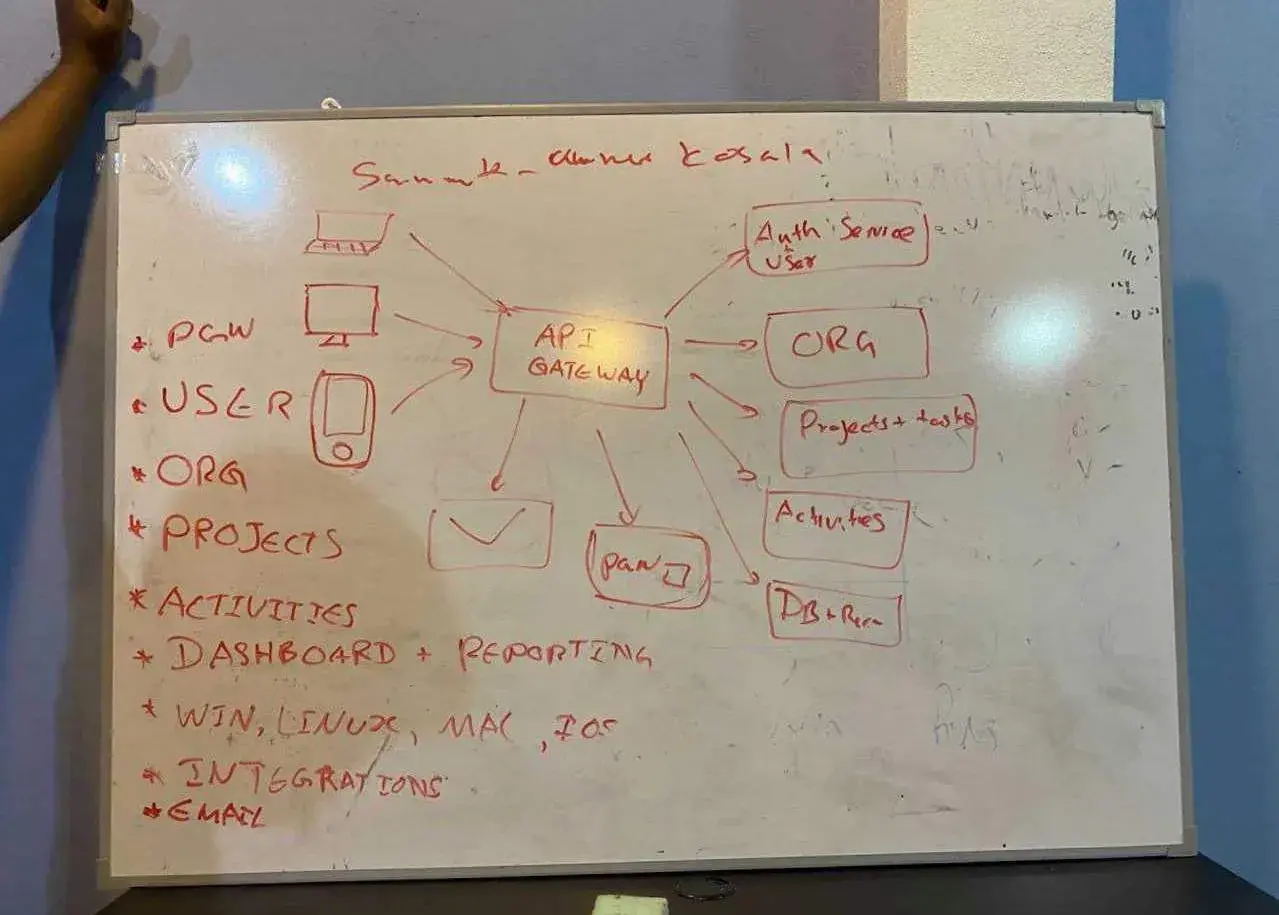 kosala
Auth Service
User
API
GATEWAY
ORG
Projects + tasks
Activities
DB +
* PGW
* USER
* ORG
* PROJECTS
* ACTIVITIES
* DASHBOARD + REPORTING
* WIN, LINUX, MAC, IOS
* INTEGRATIONS
* EMAIL